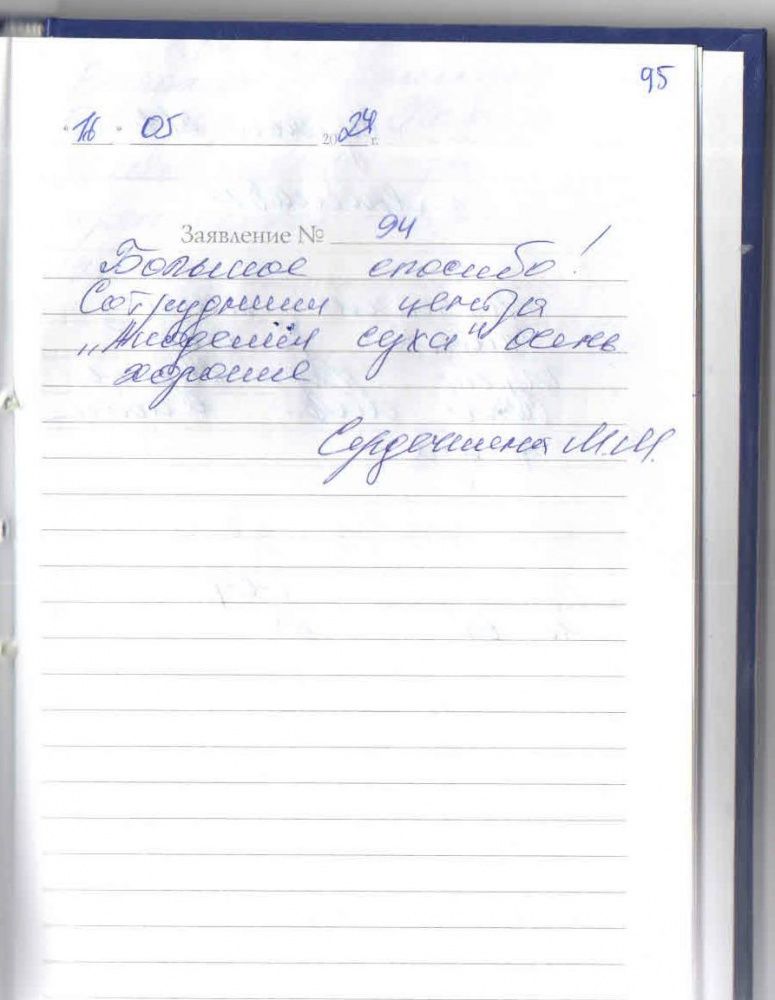 95
"16" 05 2024 г.
Заявление № 94
Большое спасибо!
Сотрудники центра
„Академия слуха" очень
хорошие
М.М.